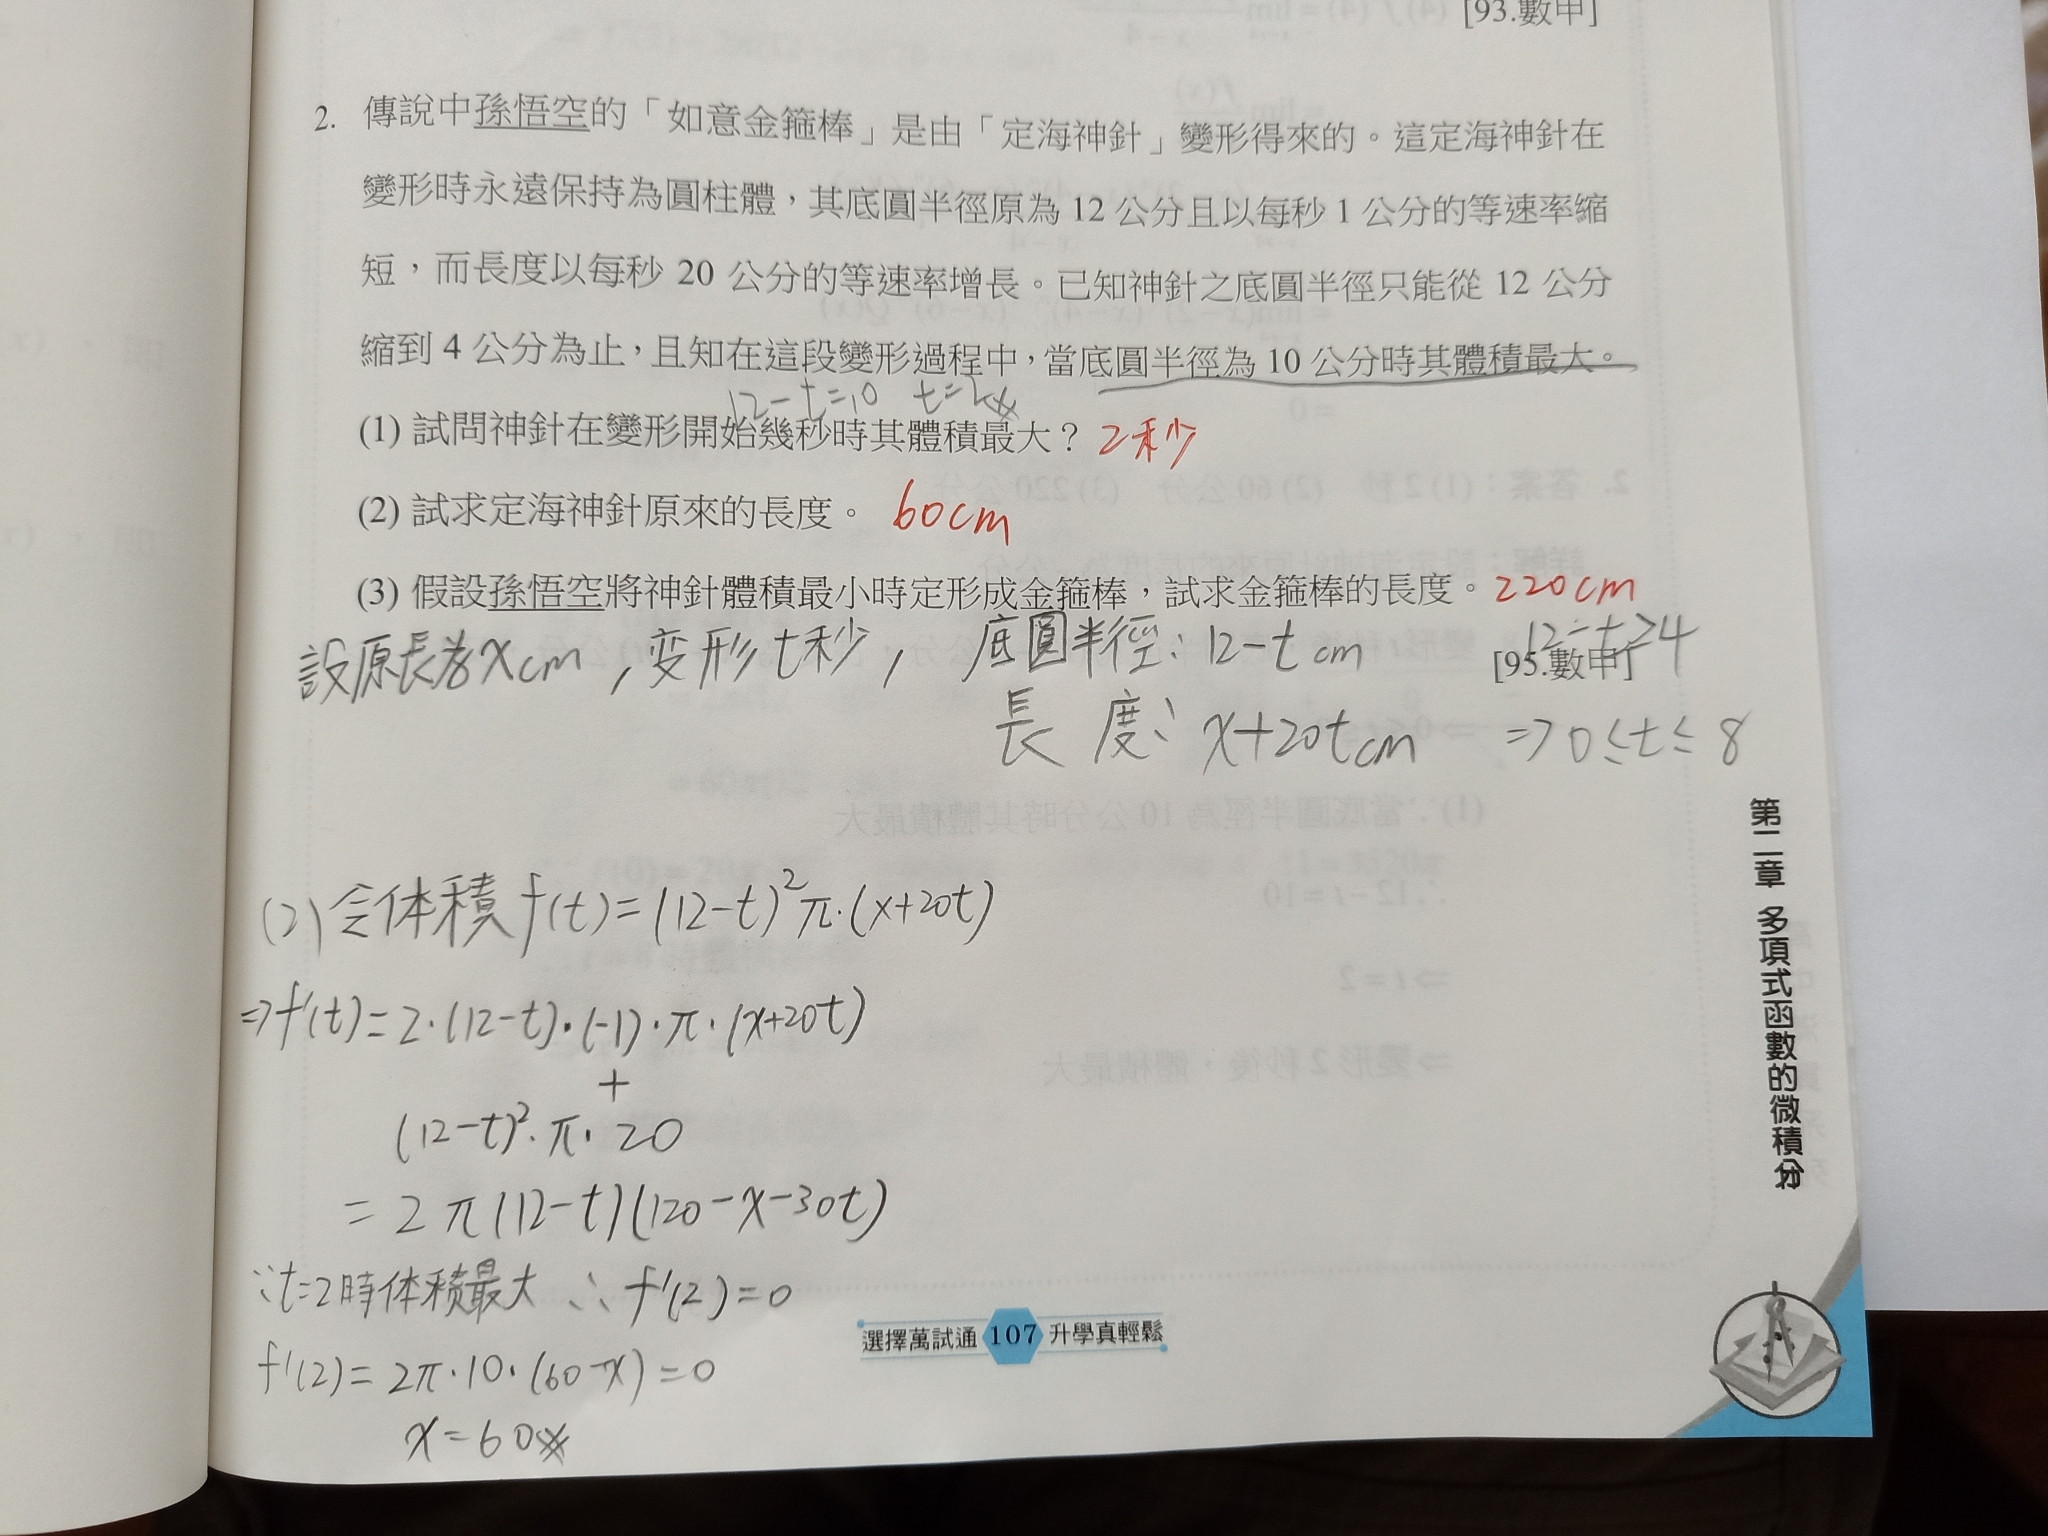 [93.數甲]
2. 傳說中孫悟空的「如意金箍棒」是由「定海神針」變形得來的。這定海神針在
變形時永遠保持為圓柱體，其底圓半徑原為 12 公分且以每秒 1 公分的等速率縮
短，而長度以每秒 20 公分的等速率增長。已知神針之底圓半徑只能從 12 公分
縮到 4 公分為止，且知在這段變形過程中，當底圓半徑為 10 公分時其體積最大。
12-t=10 t=2
(1) 試問神針在變形開始幾秒時其體積最大？ 2秒
(2) 試求定海神針原來的長度。 60cm
(3) 假設孫悟空將神針體積最小時定形成金箍棒，試求金箍棒的長度。 220cm
設原長為xcm，变形t秒，底圓半徑：12-t cm 12-t≥4
[95.數甲]
長度：x+20t cm ⇒0≤t≤8
(2) 令体積f(t)=(12-t)²π·(x+20t)
⇒f'(t)=2·(12-t)·(-1)·π·(x+20t)
+
(12-t)²·π·20
=2π(12-t)(120-x-30t)
∵t=2時体積最大 ∴f'(2)=0
f'(2)=2π·10·(60-x)=0
x=60
第二章 多項式函數的微積分
選擇萬試通 107 升學真輕鬆